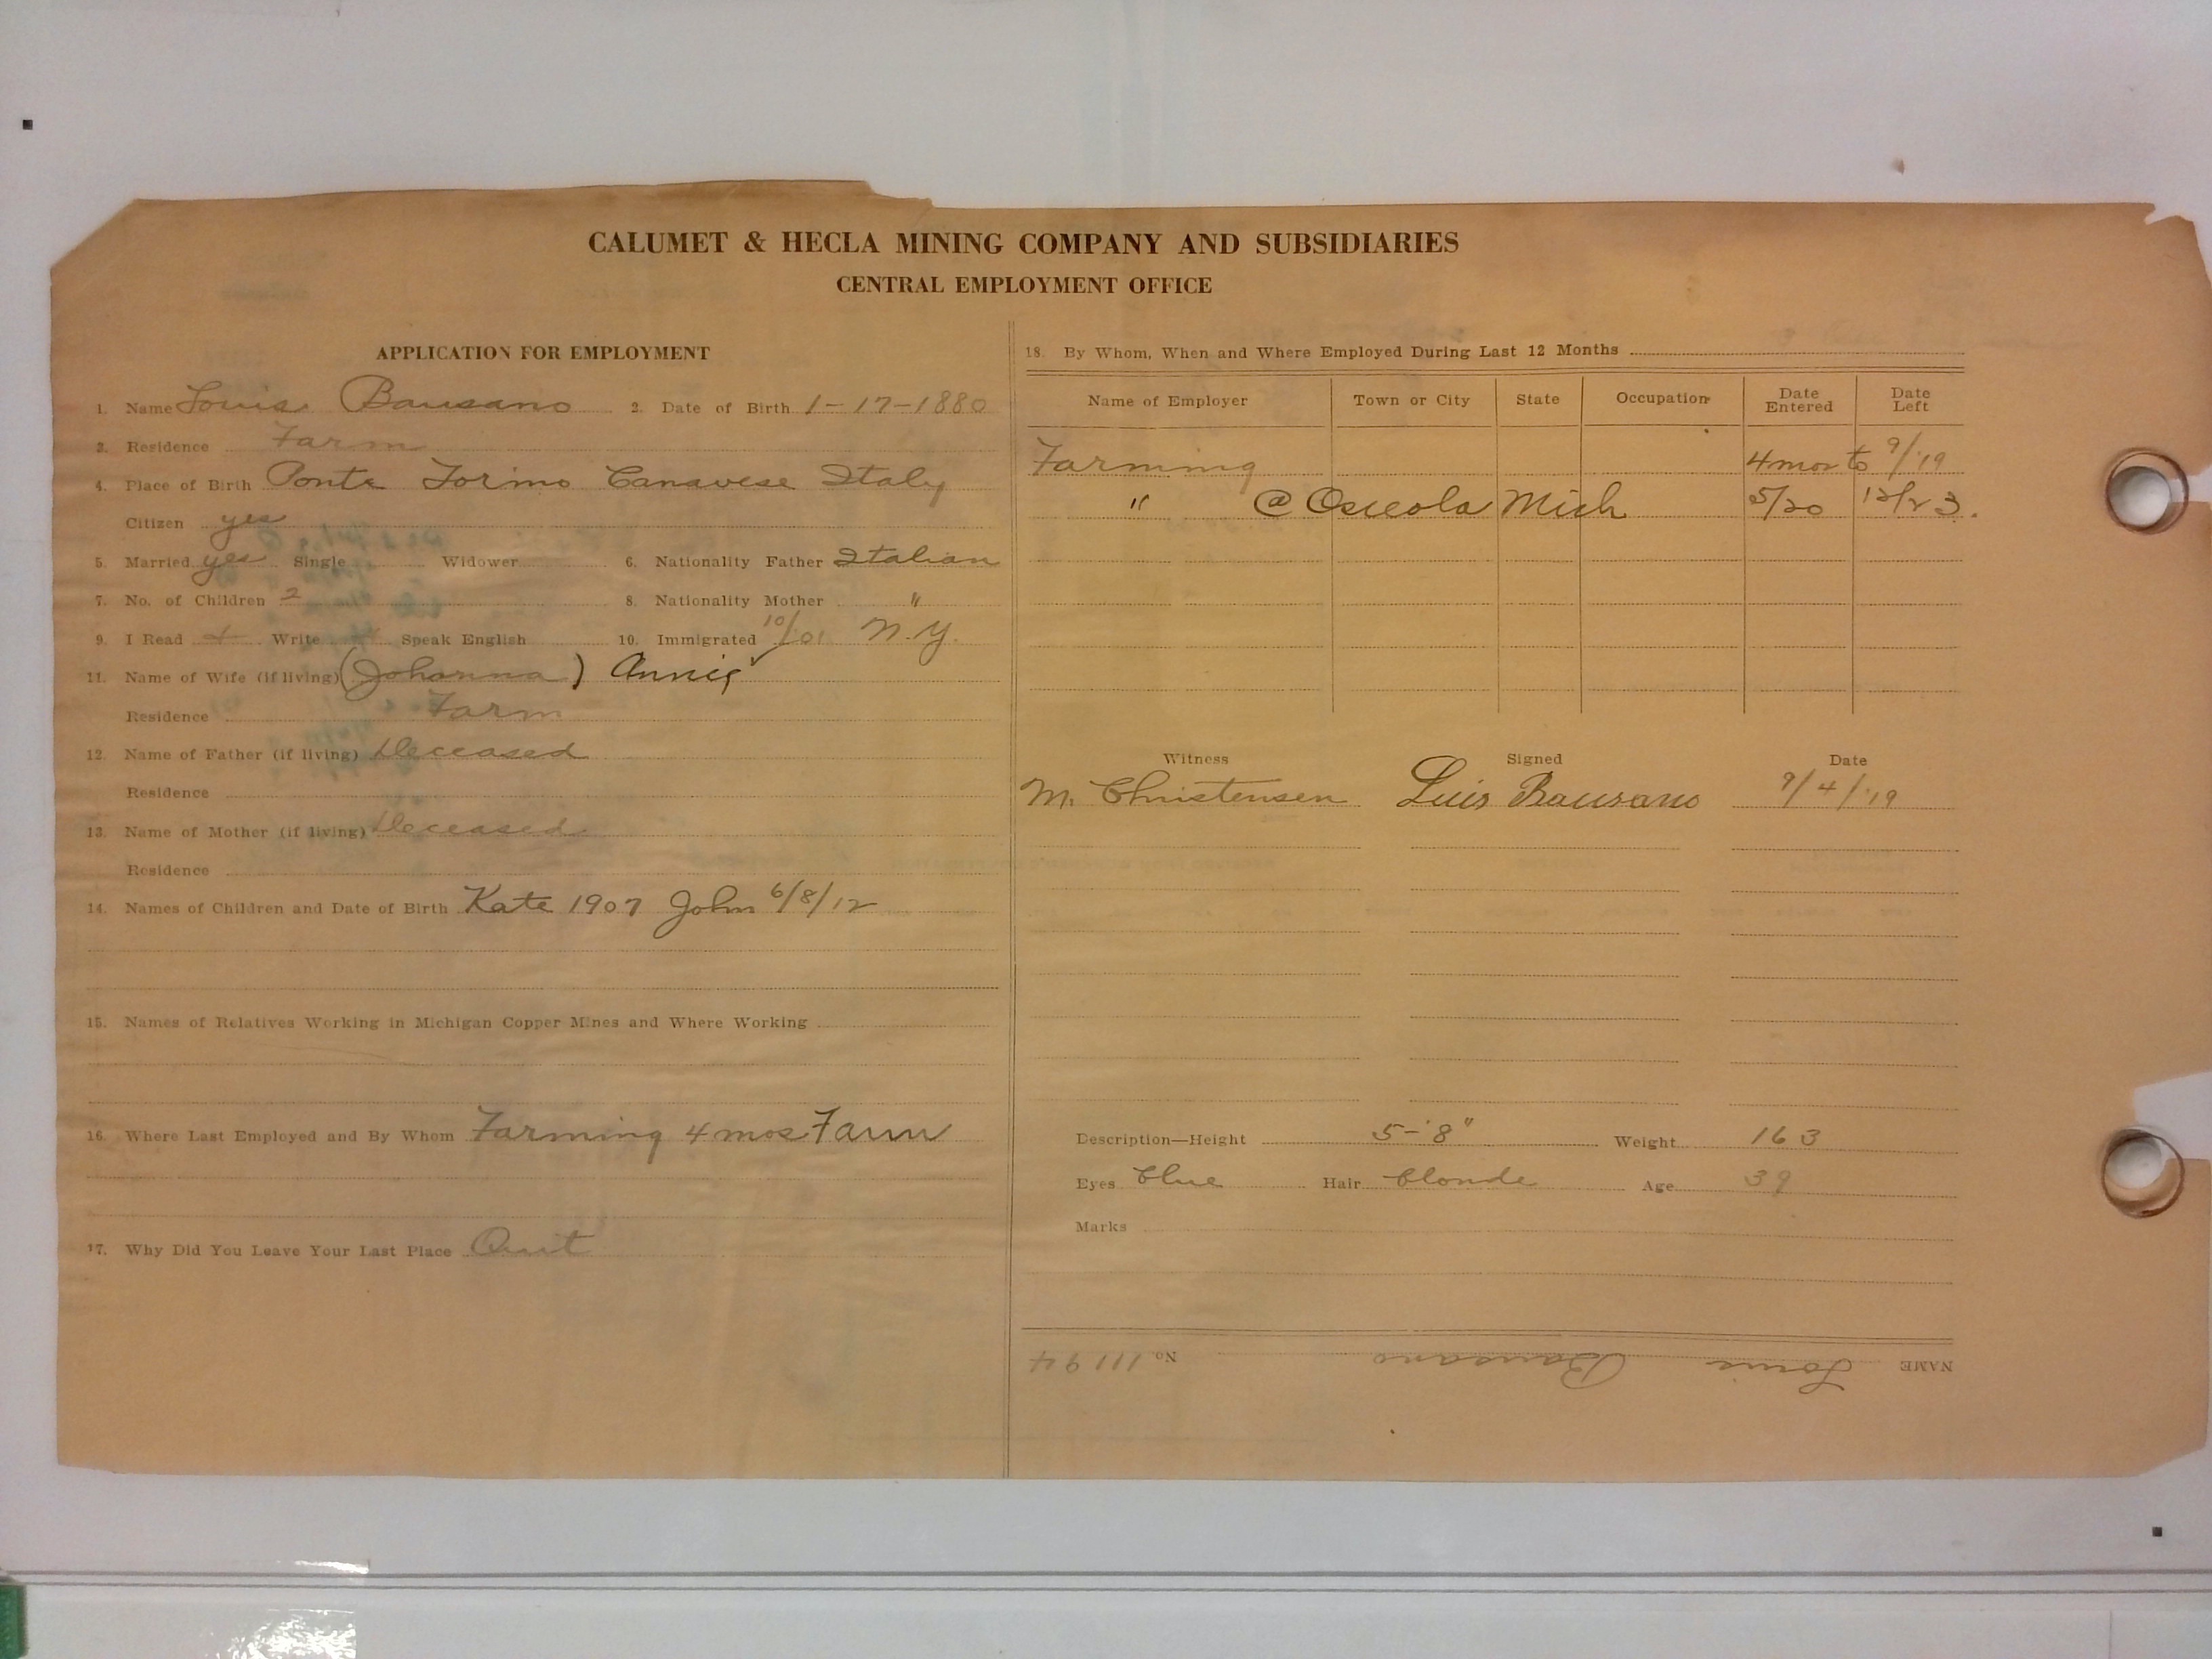 CALUMET & HECLA MINING COMPANY AND SUBSIDIARIES
CENTRAL EMPLOYMENT OFFICE
APPLICATION FOR EMPLOYMENT
1. Name Louis Bausano 2. Date of Birth 1-17-1880
3. Residence Farm
4. Place of Birth Ponte Torino Canavese Italy
Citizen yes
5. Married yes Single Widower 6. Nationality Father Italian
7. No. of Children 2 8. Nationality Mother "
9. I Read Write Speak English 10. Immigrated 10/01 N.Y.
11. Name of Wife (if living) (Johanna) Annie
Residence Farm
12. Name of Father (if living) Deceased
Residence
13. Name of Mother (if living) Deceased
Residence
14. Names of Children and Date of Birth Kate 1907 John 6/8/12
15. Names of Relatives Working in Michigan Copper Mines and Where Working
16. Where Last Employed and By Whom Farming 4 mos Farm
17. Why Did You Leave Your Last Place Quit
18. By Whom, When and Where Employed During Last 12 Months
Name of Employer Town or City State Occupation Date Entered Date Left
Farming 4 mos to 9/19
" @ Osceola Mich 5/20 12/23.
Witness Signed Date
M. Christensen Luis Bausano 9/4/19
Description—Height 5-8" Weight 163
Eyes blue Hair blonde Age 39
Marks
NAME Louis Bausano No 11194